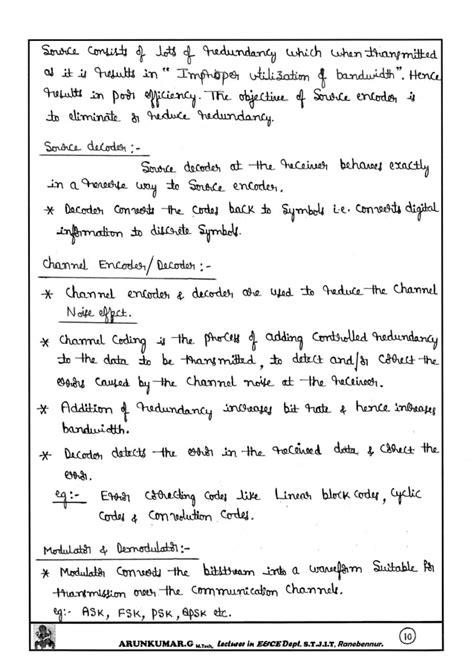 Source consists of lots of redundancy which when transmitted
as it is results in " Improper utilization of bandwidth". Hence
results in poor efficiency. The objective of Source encoder is
to eliminate or reduce redundancy.
Source decoder:-
Source decoder at the receiver behaves exactly
in a reverse way to Source encoder.
* Decoder converts the codes back to Symbols i.e. converts digital
information to discrete Symbols.
Channel Encoder/Decoder:-
* Channel encoder & decoder are used to reduce the Channel
Noise effect.
* Channel Coding is the process of adding controlled redundancy
to the data to be transmitted, to detect and/or correct the
errors caused by the channel noise at the receiver.
* Addition of redundancy increases bit rate & hence increases
bandwidth.
* Decoder detects the error in the received data & correct the
error.
eg:- Error correcting codes like Linear block codes, Cyclic
Codes & Convolution Codes.
Modulator & Demodulator:-
* Modulator Converts the bitstream into a waveform Suitable for
transmission over the Communication Channel.
eg:- ASK, FSK, PSK, QPSK etc.
ARUNKUMAR.G M.Tech, Lecturer in E&CE Dept. S.T.J.I.T, Ranebennur. 10